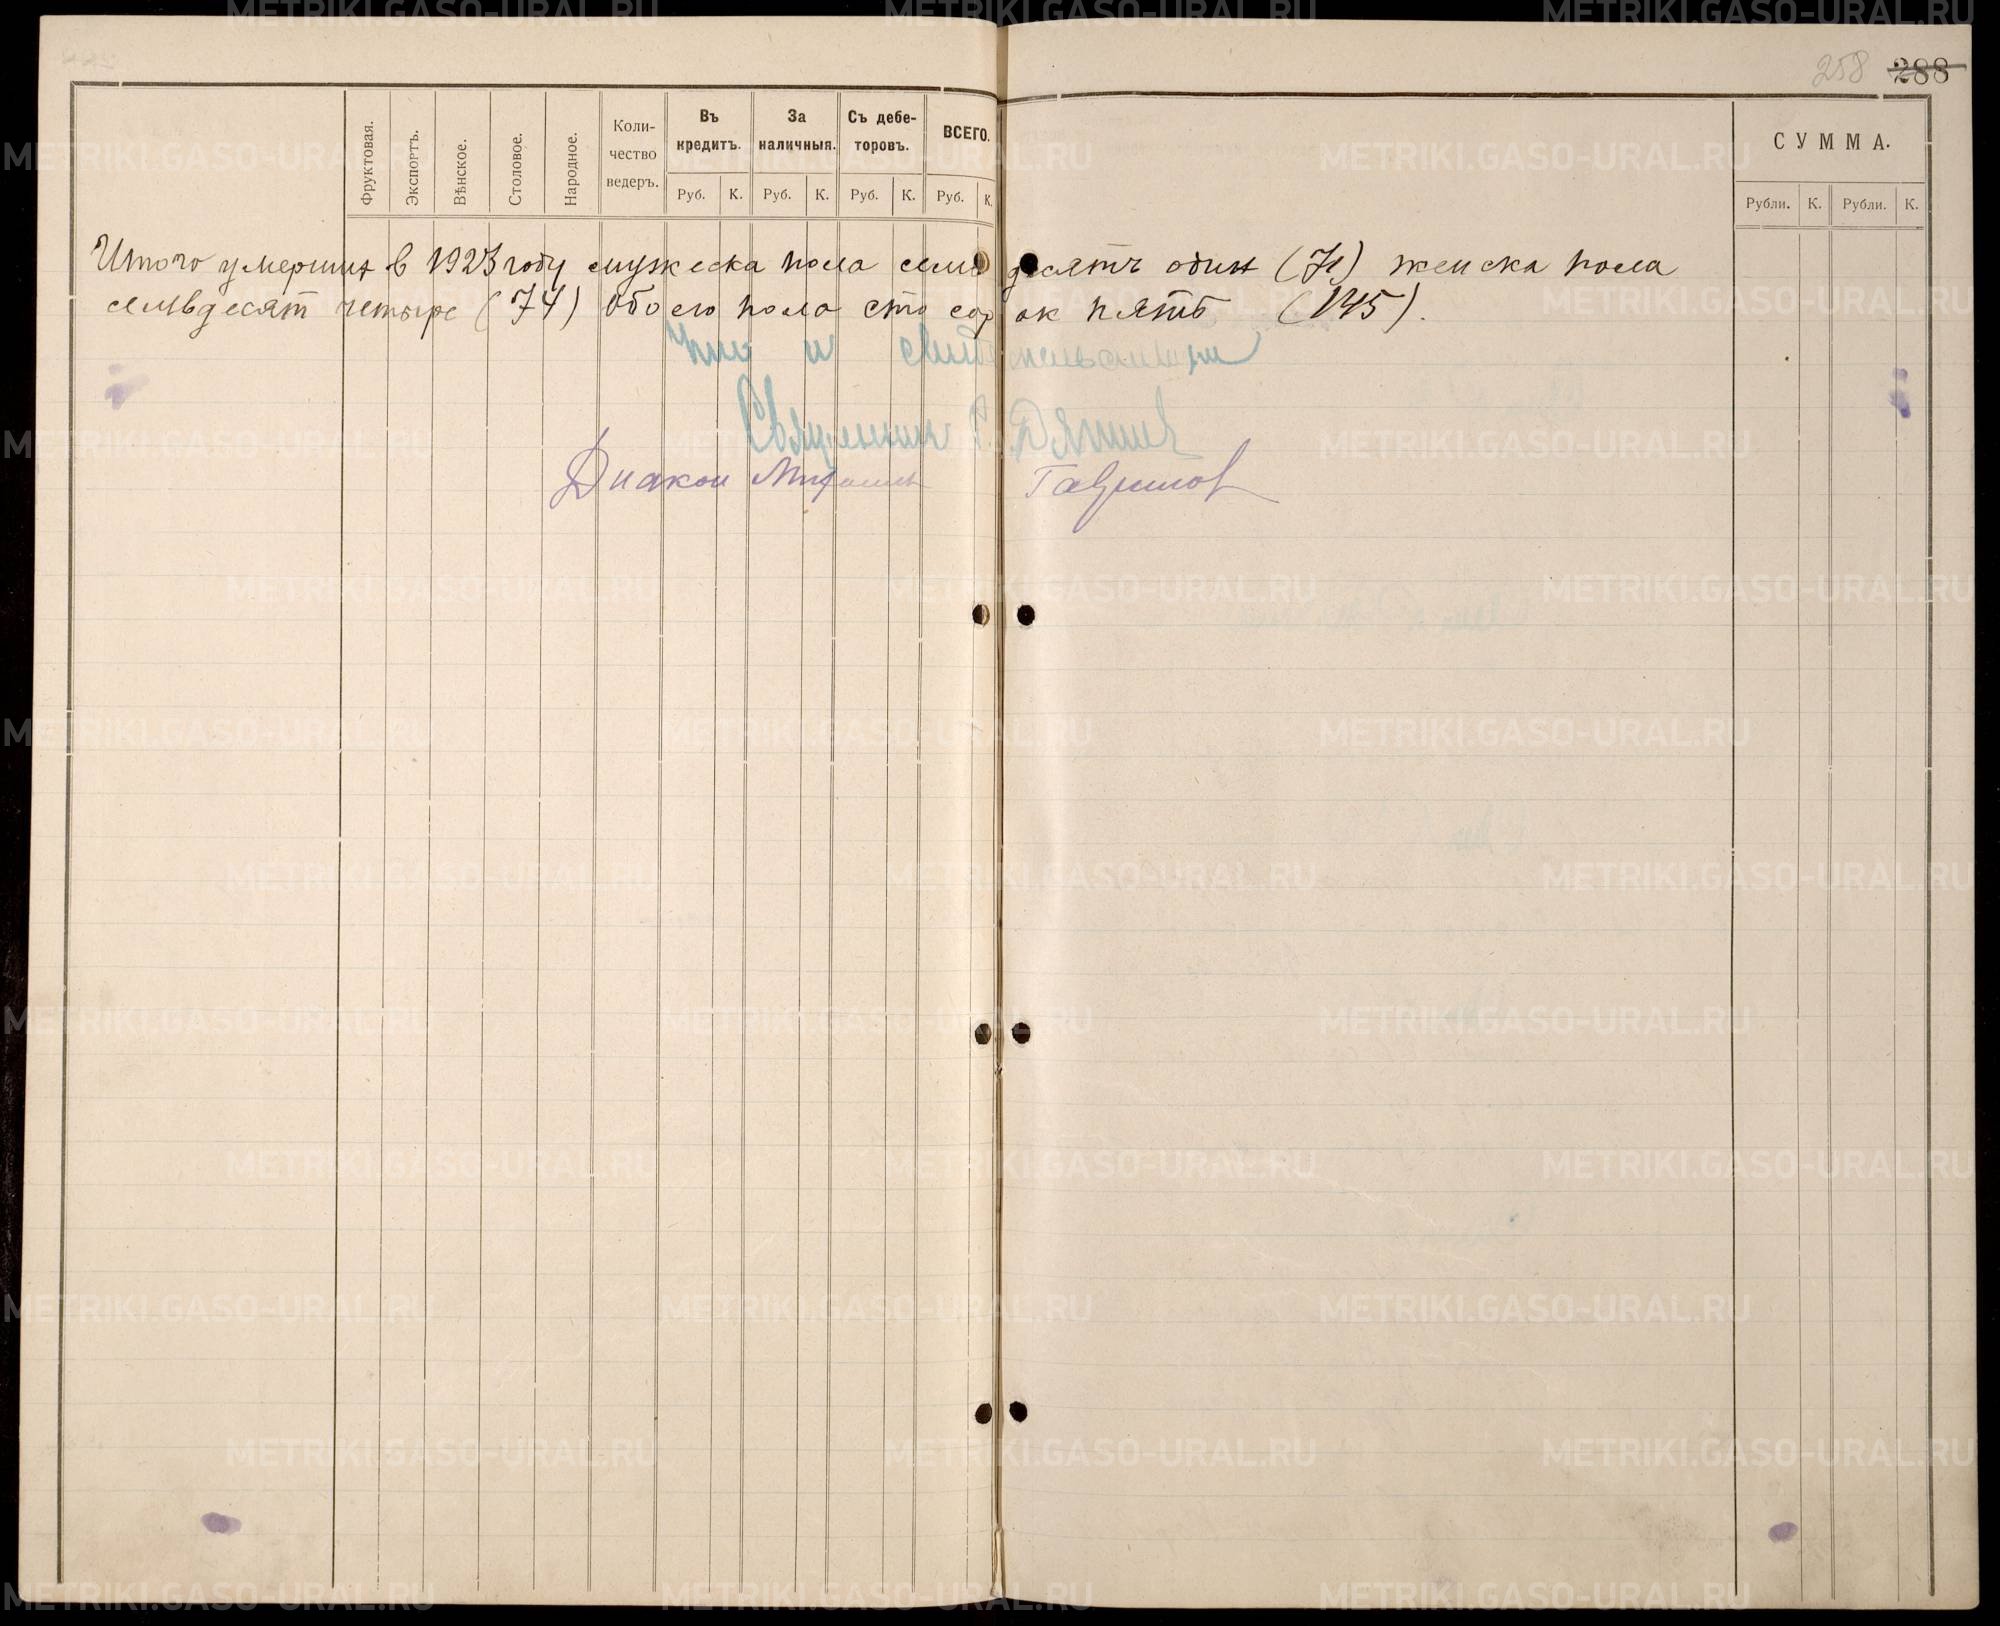 258 288
Фруктовая. Экспортъ. Вѣнское. Столовое. Народное. Коли-чество ведеръ. Въ кредитъ. За наличныя. Съ дебе-торовъ. ВСЕГО. СУММА.
Руб. К. Руб. К. Руб. К. Руб. К. Рубли. К. Рубли. К.
Итого умерших в 1923 году мужеска пола семьдесятъ один (71) женска пола
семьдесят четыре (74) обоего пола сто сорок пять (145).
и
Священник
Диакон Гаврилов
METRIKI.GASO-URAL.RU